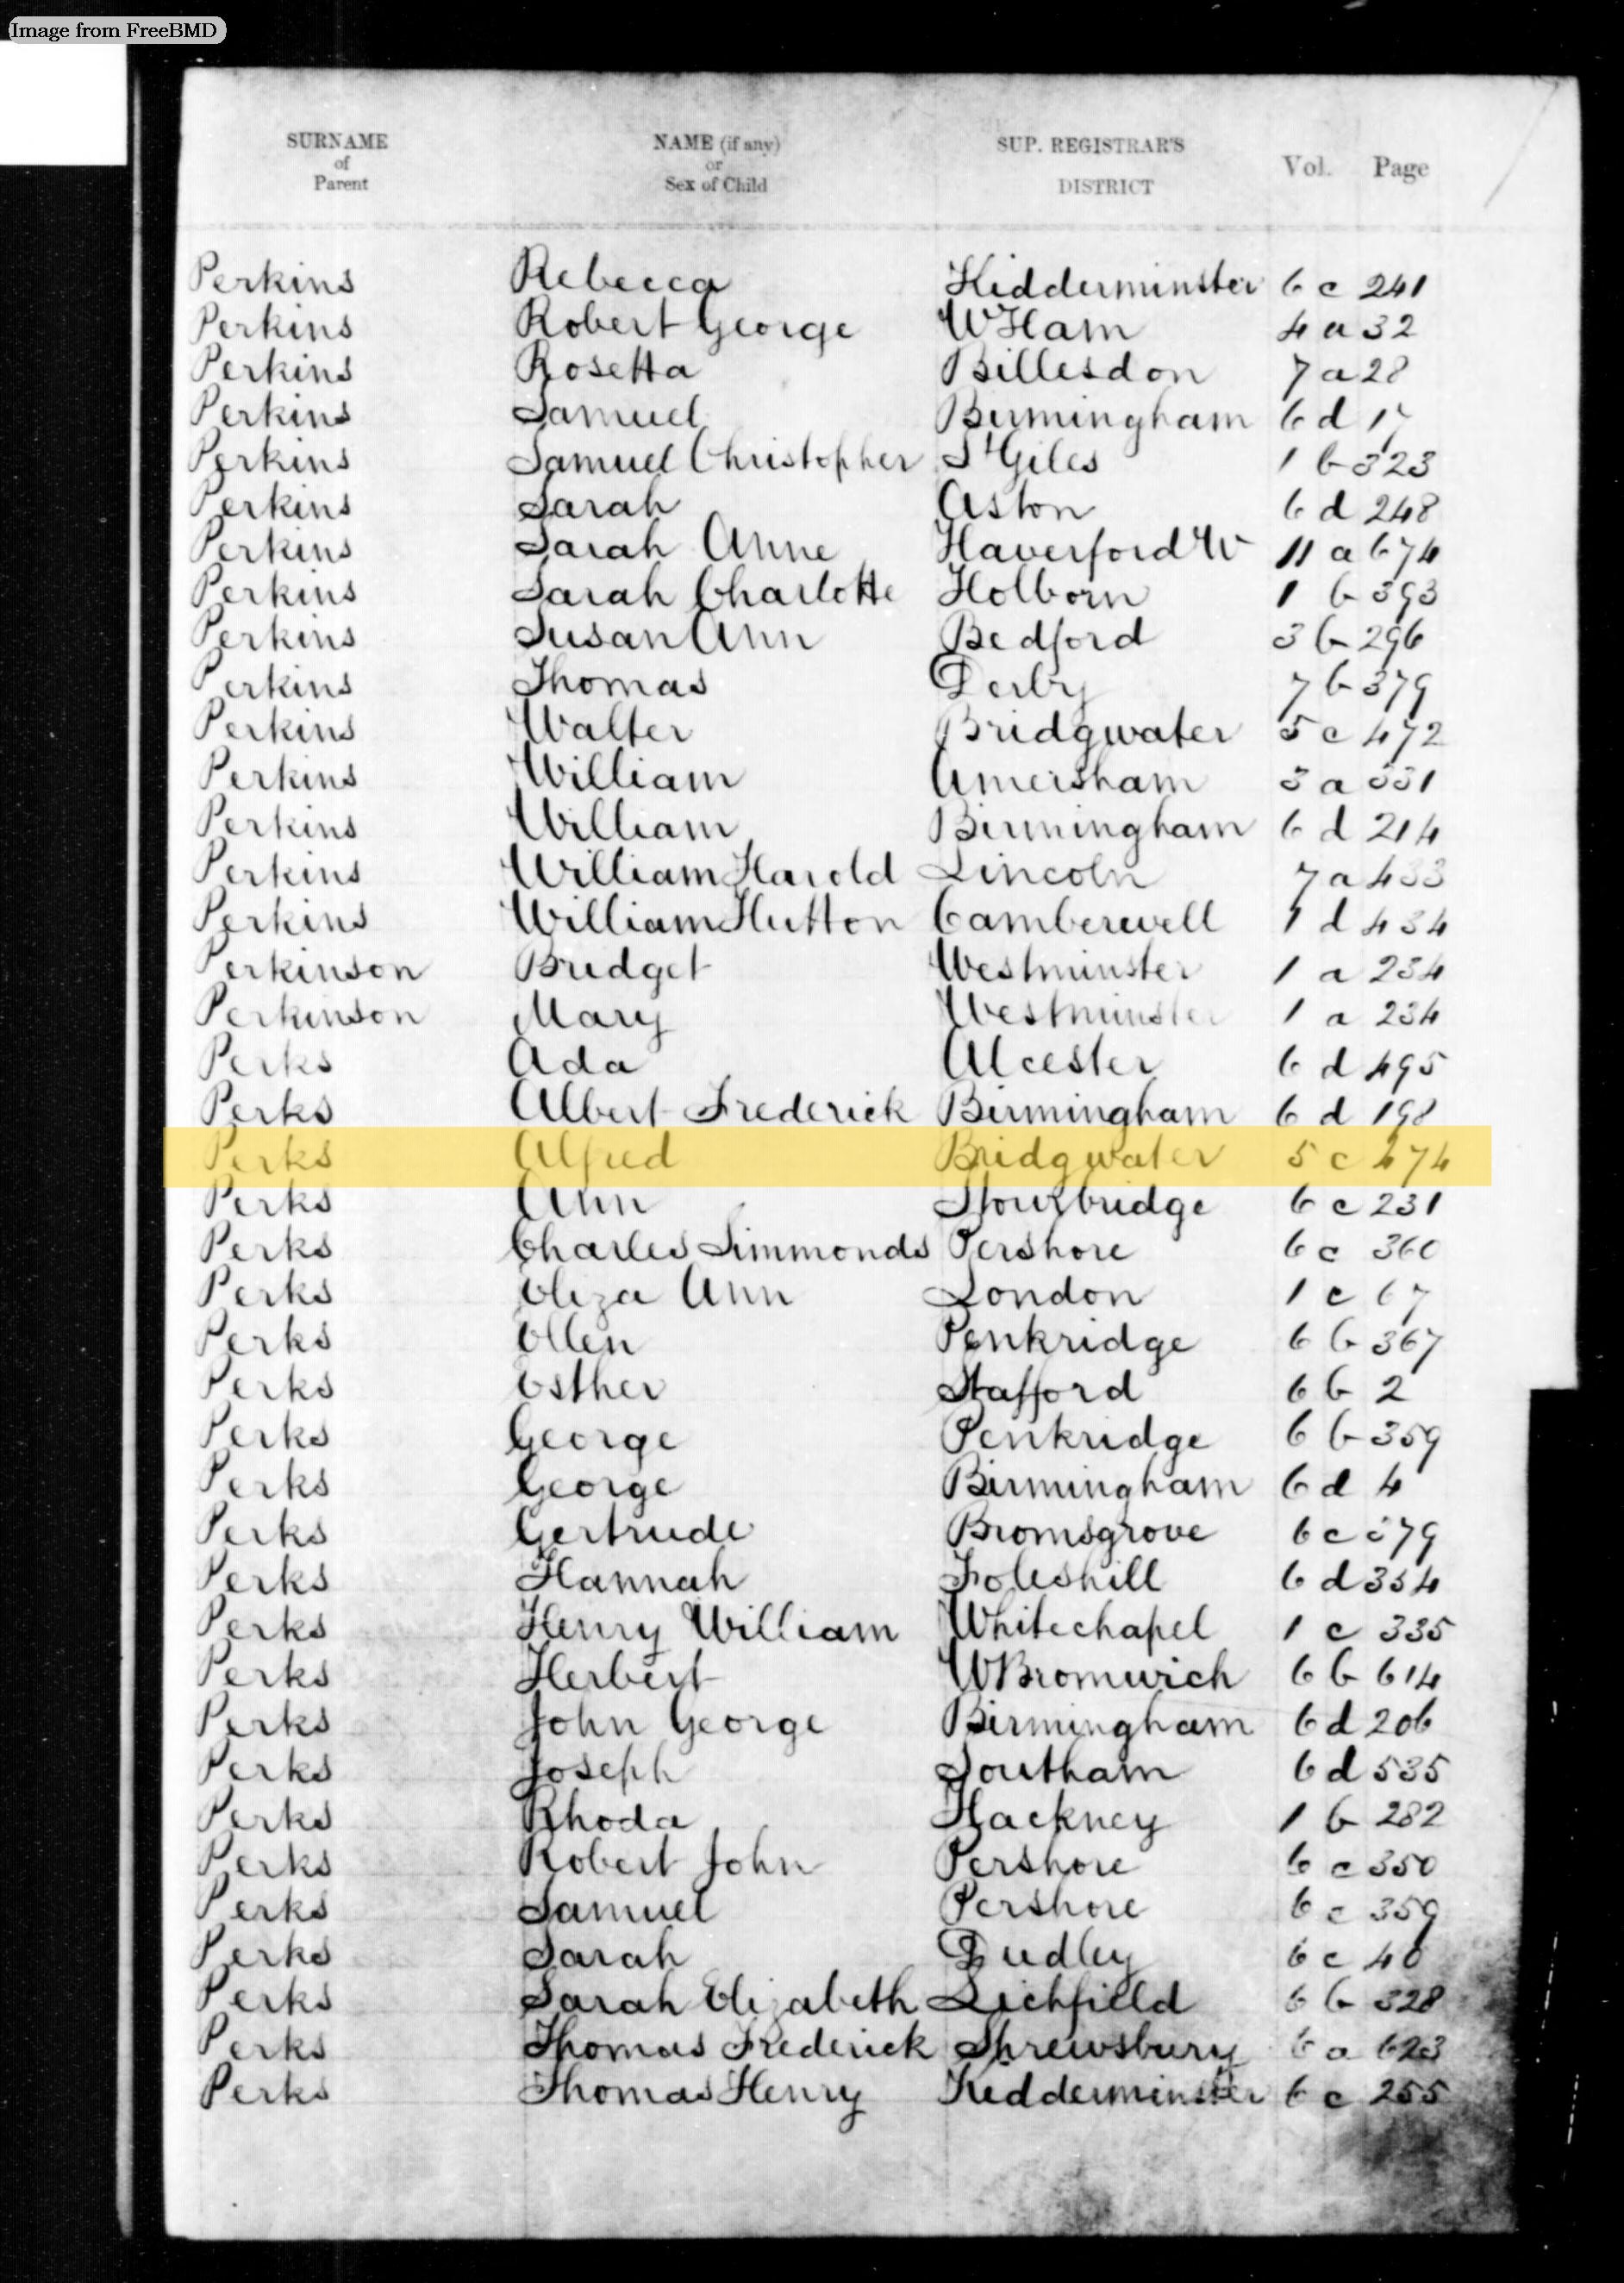 Image from FreeBMD
SURNAME of Parent NAME (if any) or Sex of Child SUP. REGISTRAR'S DISTRICT Vol. Page
Perkins Rebecca Kidderminster 6 c 241
Perkins Robert George W Ham 4 a 32
Perkins Rosetta Billesdon 7 a 28
Perkins Samuel Birmingham 6 d 17
Perkins Samuel Christopher St Giles 1 b 323
Perkins Sarah Aston 6 d 248
Perkins Sarah Anne Haverford W 11 a 674
Perkins Sarah Charlotte Holborn 1 b 393
Perkins Susan Ann Bedford 3 b 296
Perkins Thomas Derby 7 b 379
Perkins Walter Bridgwater 5 c 472
Perkins William Amersham 3 a 331
Perkins William Birmingham 6 d 214
Perkins William Harold Lincoln 7 a 433
Perkins William Hutton Camberwell 1 d 434
Perkinson Bridget Westminster 1 a 234
Perkinson Mary Westminster 1 a 234
Perks Ada Alcester 6 d 495
Perks Albert Frederick Birmingham 6 d 198
Perks Alfred Bridgwater 5 c 474
Perks Ann Stourbridge 6 c 231
Perks Charles Simmonds Pershore 6 c 360
Perks Eliza Ann London 1 c 67
Perks Ellen Penkridge 6 b 367
Perks Esther Stafford 6 b 2
Perks George Penkridge 6 b 359
Perks George Birmingham 6 d 4
Perks Gertrude Bromsgrove 6 c 379
Perks Hannah Foleshill 6 d 354
Perks Henry William Whitechapel 1 c 335
Perks Herbert W Bromwich 6 b 614
Perks John George Birmingham 6 d 206
Perks Joseph Southam 6 d 535
Perks Rhoda Hackney 1 b 282
Perks Robert John Pershore 6 c 350
Perks Samuel Pershore 6 c 359
Perks Sarah Dudley 6 c 40
Perks Sarah Elizabeth Lichfield 6 b 328
Perks Thomas Frederick Shrewsbury 6 a 623
Perks Thomas Henry Kidderminster 6 c 255